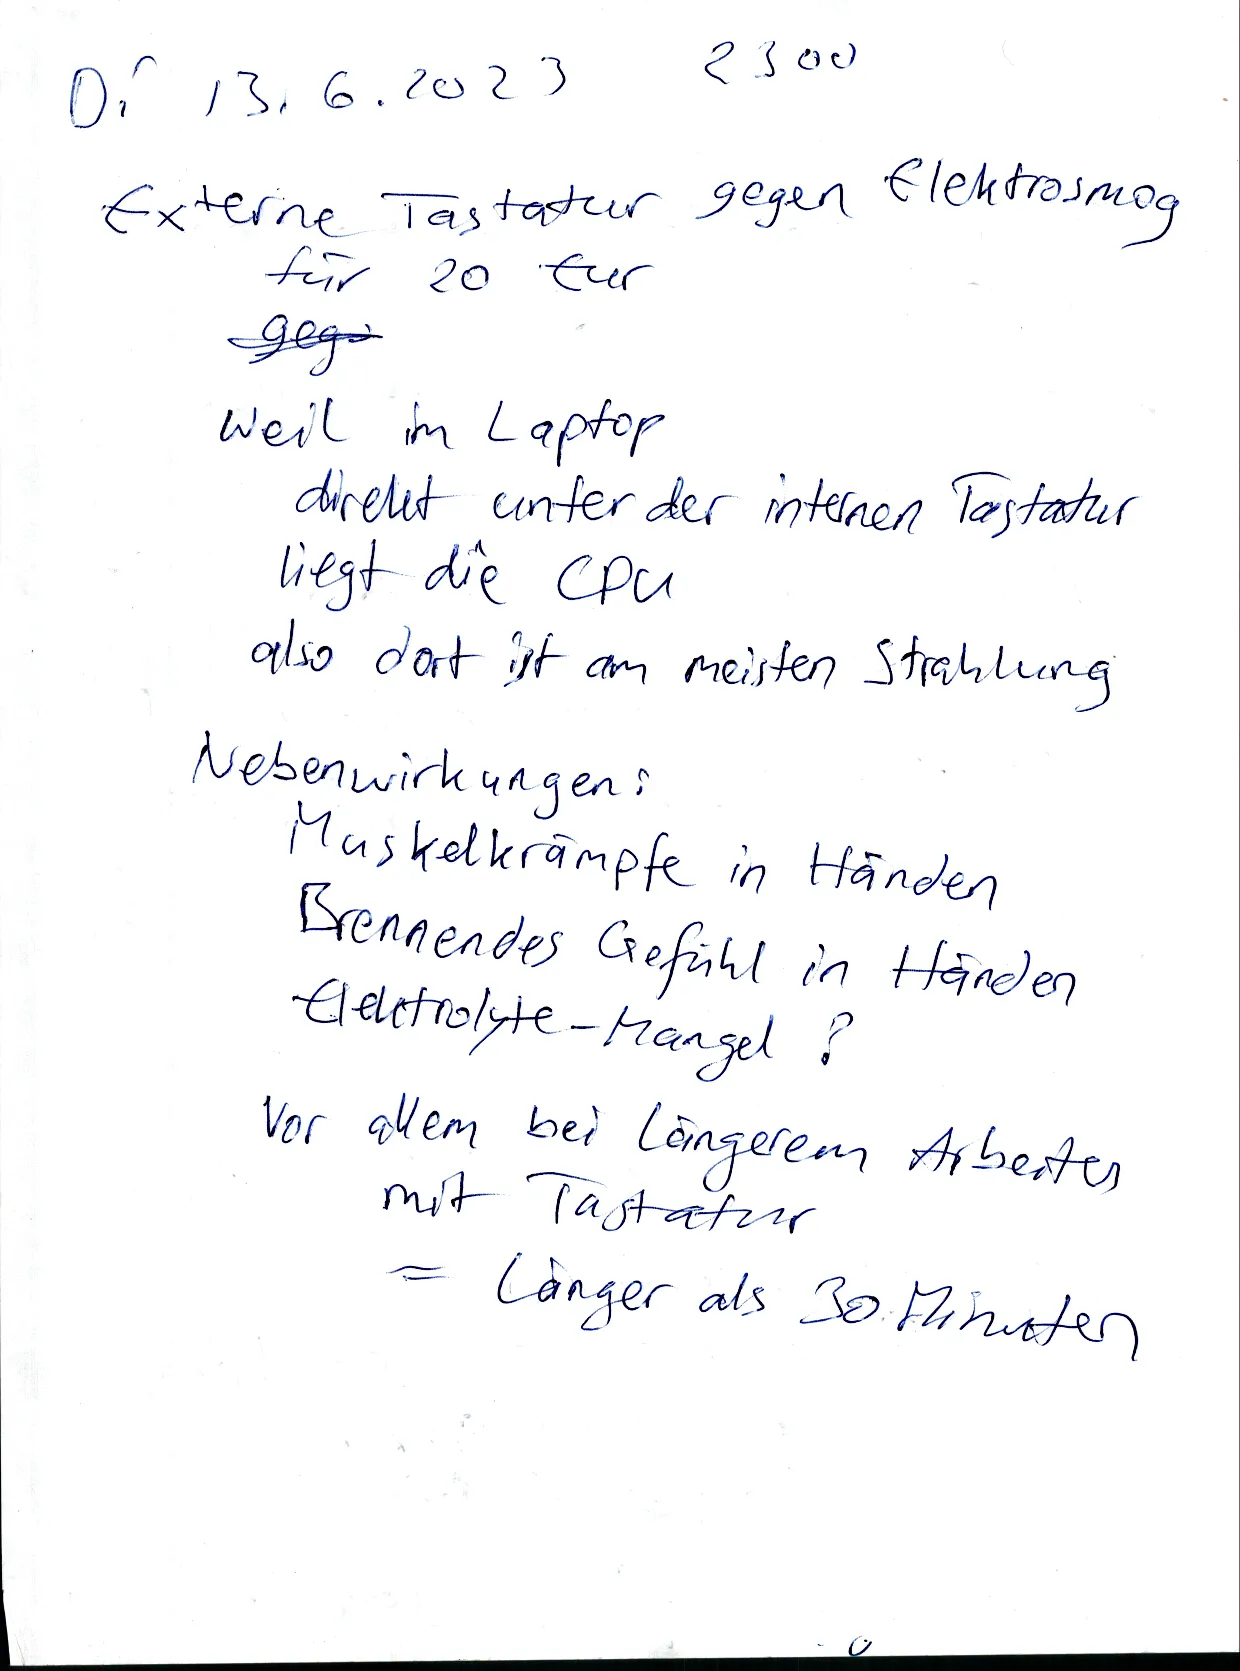 Di 13.6.2023 2300
Externe Tastatur gegen Elektrosmog
für 20 Eur
geg
weil im Laptop
direkt unter der internen Tastatur
liegt die CPU
also dort ist am meisten Strahlung
Nebenwirkungen:
Muskelkrämpfe in Händen
Brennendes Gefühl in Händen
Elektrolyte-Mangel?
Vor allem bei längerem Arbeiten
mit Tastatur
= Länger als 30 Minuten